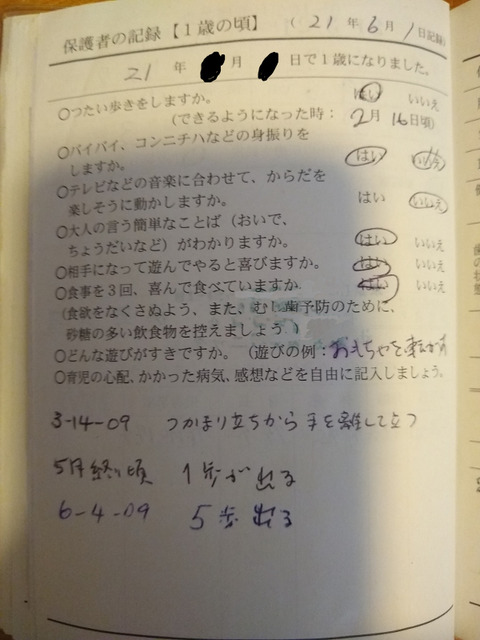 保護者の記録【1歳の頃】 (21年6月1日記録)
21年 月 日で1歳になりました。
○つたい歩きをしますか。 はい いいえ
(できるようになった時: 2月16日頃)
○バイバイ、コンニチハなどの身振りを
しますか。 はい いいえ
○テレビなどの音楽に合わせて、からだを
楽しそうに動かしますか。 はい いいえ
○大人の言う簡単なことば(おいで、
ちょうだいなど)がわかりますか。 はい いいえ
○相手になって遊んでやると喜びますか。 はい いいえ
○食事を3回、喜んで食べていますか。 はい いいえ
(食欲をなくさぬよう、また、むし歯予防のために、
砂糖の多い飲食物を控えましょう。)
○どんな遊びがすきですか。(遊びの例:おもちゃを転がす
○育児の心配、かかった病気、感想などを自由に記入しましょう。
3-14-09 つかまり立ちから手を離して立つ
5月終り頃 1歩が出る
6-4-09 5歩出る